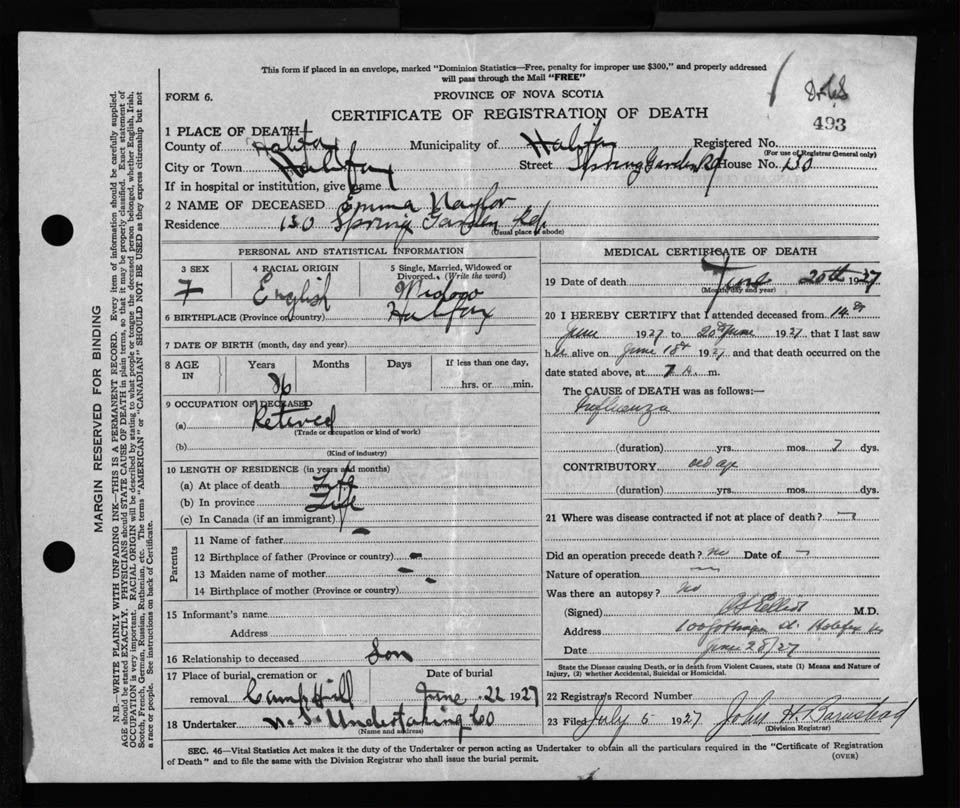 This form if placed in an envelope, marked "Dominion Statistics—Free, penalty for improper use $300," and properly addressed
will pass through the Mail "FREE"
FORM 6.
PROVINCE OF NOVA SCOTIA
CERTIFICATE OF REGISTRATION OF DEATH
493
1 PLACE OF DEATH
County of Halifax Municipality of Halifax Registered No.
(For use of Registrar General only)
City or Town Halifax Street Spring Garden Rd House No. 130
If in hospital or institution, give name
2 NAME OF DECEASED Emma Naylor
Residence 130 Spring Garden Rd.
(Usual place of abode)
PERSONAL AND STATISTICAL INFORMATION
3 SEX 4 RACIAL ORIGIN 5 Single, Married, Widowed or
Divorced. (Write the word)
F English Widow
6 BIRTHPLACE (Province or country) Halifax
7 DATE OF BIRTH (month, day and year)
8 AGE IN Years Months Days If less than one day,
86 hrs. or min.
9 OCCUPATION OF DECEASED
(a) Retired
(Trade or occupation or kind of work)
(b)
(Kind of industry)
10 LENGTH OF RESIDENCE (in years and months)
(a) At place of death Life
(b) In province Life
(c) In Canada (if an immigrant)
Parents
11 Name of father —
12 Birthplace of father (Province or country) —
13 Maiden name of mother —
14 Birthplace of mother (Province or country) —
15 Informant's name
Address
16 Relationship to deceased Son
17 Place of burial, cremation or Date of burial
removal Camp Hill June 22 1927
18 Undertaker N. S. Undertaking Co
(Name and address)
MEDICAL CERTIFICATE OF DEATH
19 Date of death June 20th 1927
(Month, day and year)
20 I HEREBY CERTIFY that I attended deceased from 14th
June 1927 to 20th June 1927, that I last saw
her alive on June 18th 1927 and that death occurred on the
date stated above, at 7 A. m.
The CAUSE of DEATH was as follows:—
Influenza
(duration) yrs. mos. 7 dys.
CONTRIBUTORY old age
(duration) yrs. mos. dys.
21 Where was disease contracted if not at place of death? —
Did an operation precede death? no Date of —
Nature of operation —
Was there an autopsy? No
(Signed) Elliot M.D.
Address 100 Halifax
Date June 28/27
State the Disease causing Death, or in death from Violent Causes, state (1) Means and Nature of
Injury, (2) whether Accidental, Suicidal or Homicidal.
22 Registrar's Record Number
23 Filed July 5 1927 John H. Barnstead
(Division Registrar)
SEC. 46—Vital Statistics Act makes it the duty of the Undertaker or person acting as Undertaker to obtain all the particulars required in the "Certificate of Registration
of Death" and to file the same with the Division Registrar who shall issue the burial permit.
(OVER)
MARGIN RESERVED FOR BINDING
N.B.—WRITE PLAINLY WITH UNFADING INK—THIS IS A PERMANENT RECORD. Every item of information should be carefully supplied.
AGE should be stated EXACTLY. PHYSICIANS should STATE CAUSE OF DEATH in plain terms, so that it may be properly classified. Exact statement of
OCCUPATION is very important. RACIAL ORIGIN will be described by stating to what people or tongue the deceased person belonged, whether English, Irish,
Scotch, French, German, Russian, Ruthenian, etc. The terms "AMERICAN" or "CANADIAN" SHOULD NOT BE USED as they express citizenship but not
a race or people. See instructions on back of Certificate.